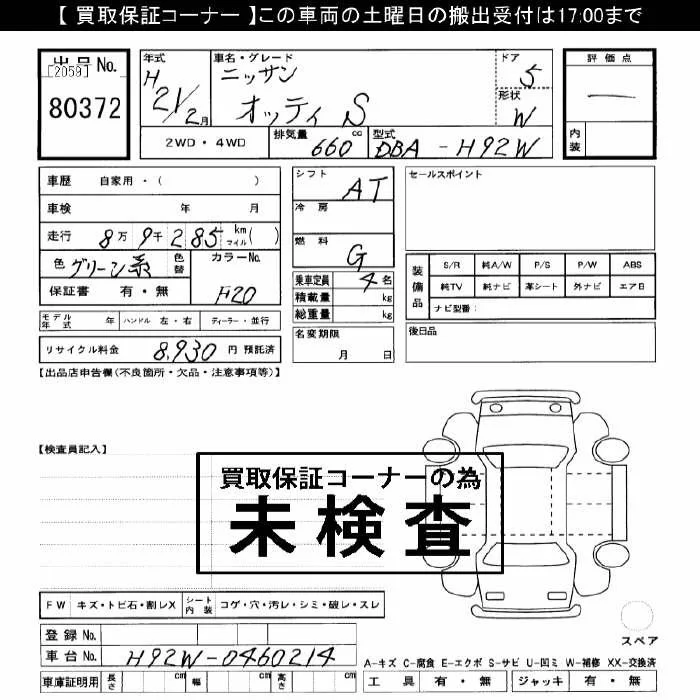 【 買取保証コーナー 】この車両の土曜日の搬出受付は17:00まで
出品No.
[2059]
80372
年式
H
21/2月
車名・グレード
ニッサン
オッティ S
ドア
5
形状
W
評価点
一
内装
2WD・4WD
排気量 660 cc
型式 DBA-H92W
車歴 自家用・( )
車検 年 月
走行 8万9千285 km マイル( )
色 グリーン系
色替
カラーNo.
H20
保証書 有・無
モデル年式 年
ハンドル 左・右
ディーラー・並行
リサイクル料金 8,930 円 預託済
シフト AT
冷房
燃料 G
乗車定員 4名
積載量 kg
総重量 kg
名変期限
月 日
セールスポイント
装備品
S/R 純A/W P/S P/W ABS
純TV 純ナビ 革シート 外ナビ エアB
ナビ型番:
後日品
【出品店申告欄(不良箇所・欠品・注意事項等)】
【検査員記入】
買取保証コーナーの為
未検査
FW キズ・トビ石・割レX
シート内装 コゲ・穴・汚レ・シミ・破レ・スレ
スペア
登録No.
車台No. H92W-0460214
車庫証明用 長さ cm 幅 cm 高さ cm
A-キズ C-腐食 E-エクボ S-サビ U-凹ミ W-補修 XX-交換済
工具 有・無 ジャッキ 有・無